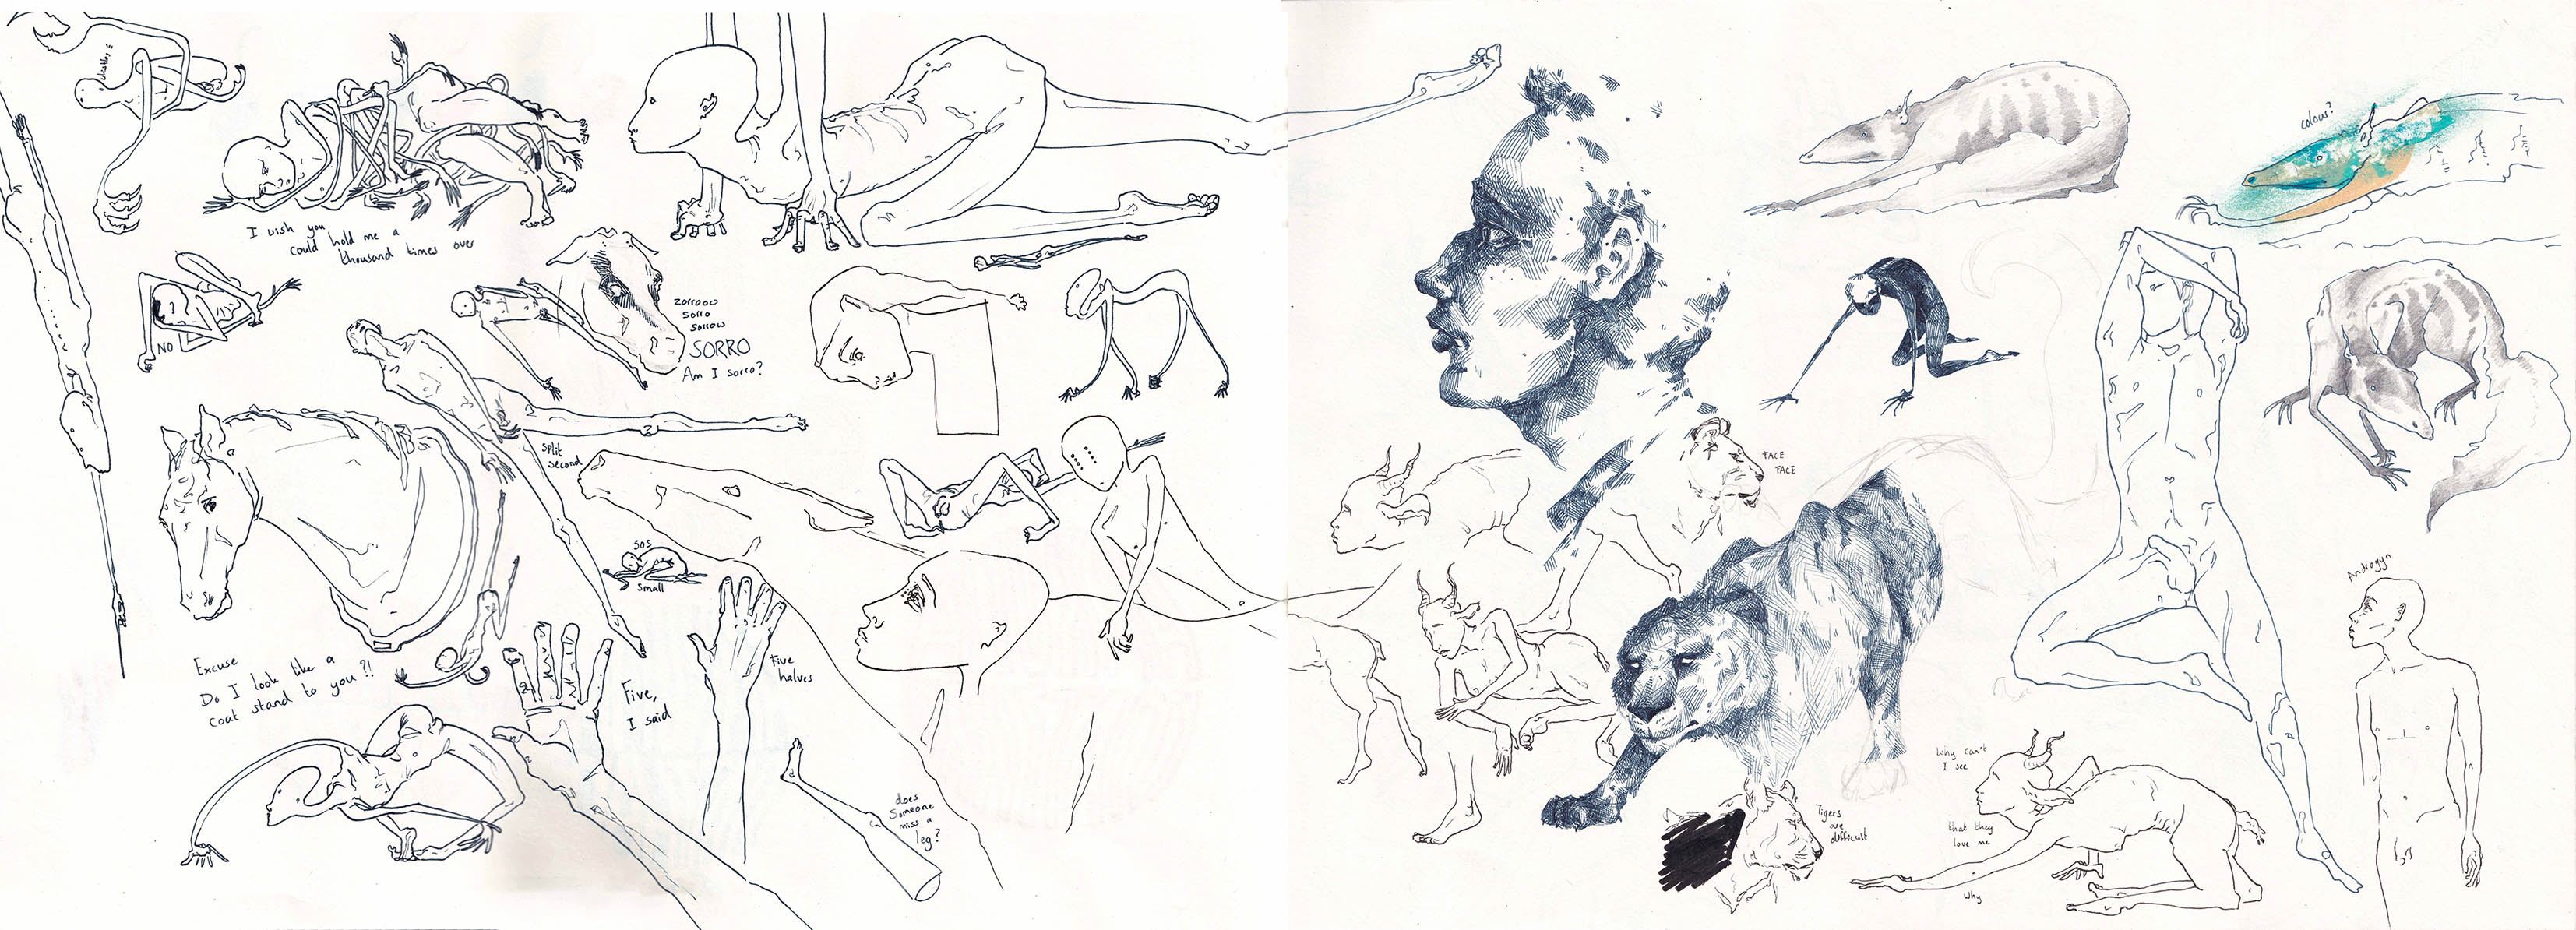 I wish you
could hold me a
thousand times over
NO
zorrooo
sorro
sorrow
SORRO
Am I sorro?
split
second
SOS
small
Excuse
Do I look like a
coat stand to you?!
Five,
I said
Five
halves
does
Someone
miss a
leg?
colour?
FACE
FACE
Tigers
are
difficult
Why can't
I see
that they
love me
why
Androgyn